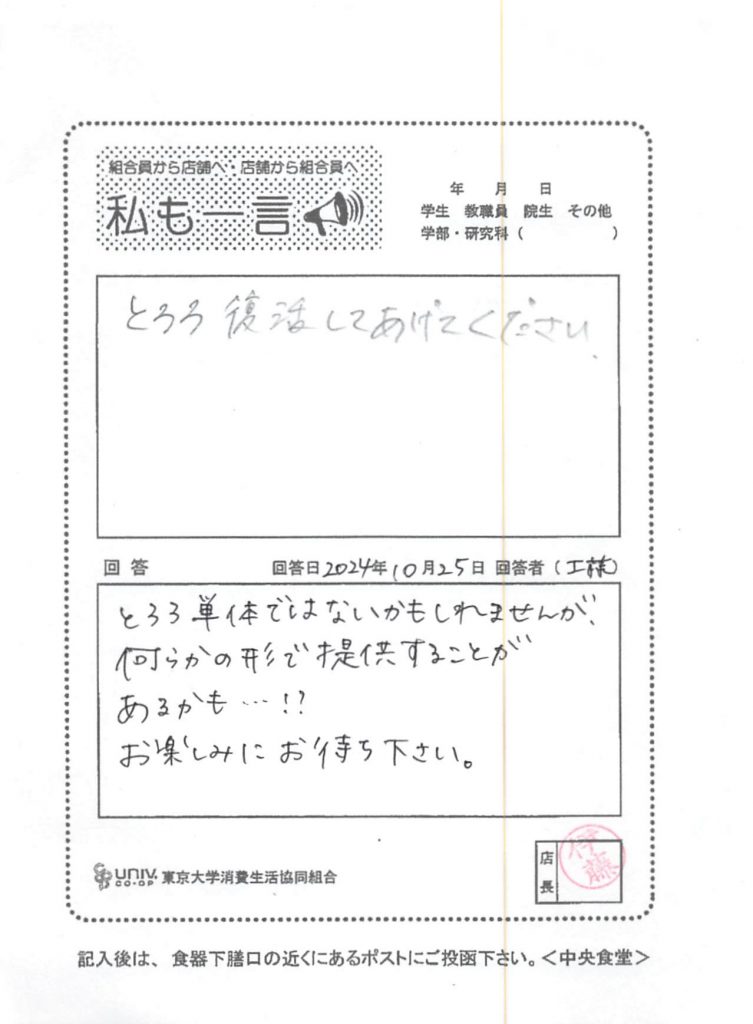 組合員から店舗へ・店舗から組合員へ
私も一言
年 月 日
学生 教職員 院生 その他
学部・研究科( )
とろろ復活してあげてください.
回答 回答日2024年10月25日 回答者(工藤)
とろろ単体ではないかもしれませんが、
何らかの形で提供することが
あるかも…!?
お楽しみにお待ち下さい。
UNIV.
CO-OP
東京大学消費生活協同組合
店長
伊藤
記入後は、食器下膳口の近くにあるポストにご投函下さい。<中央食堂>